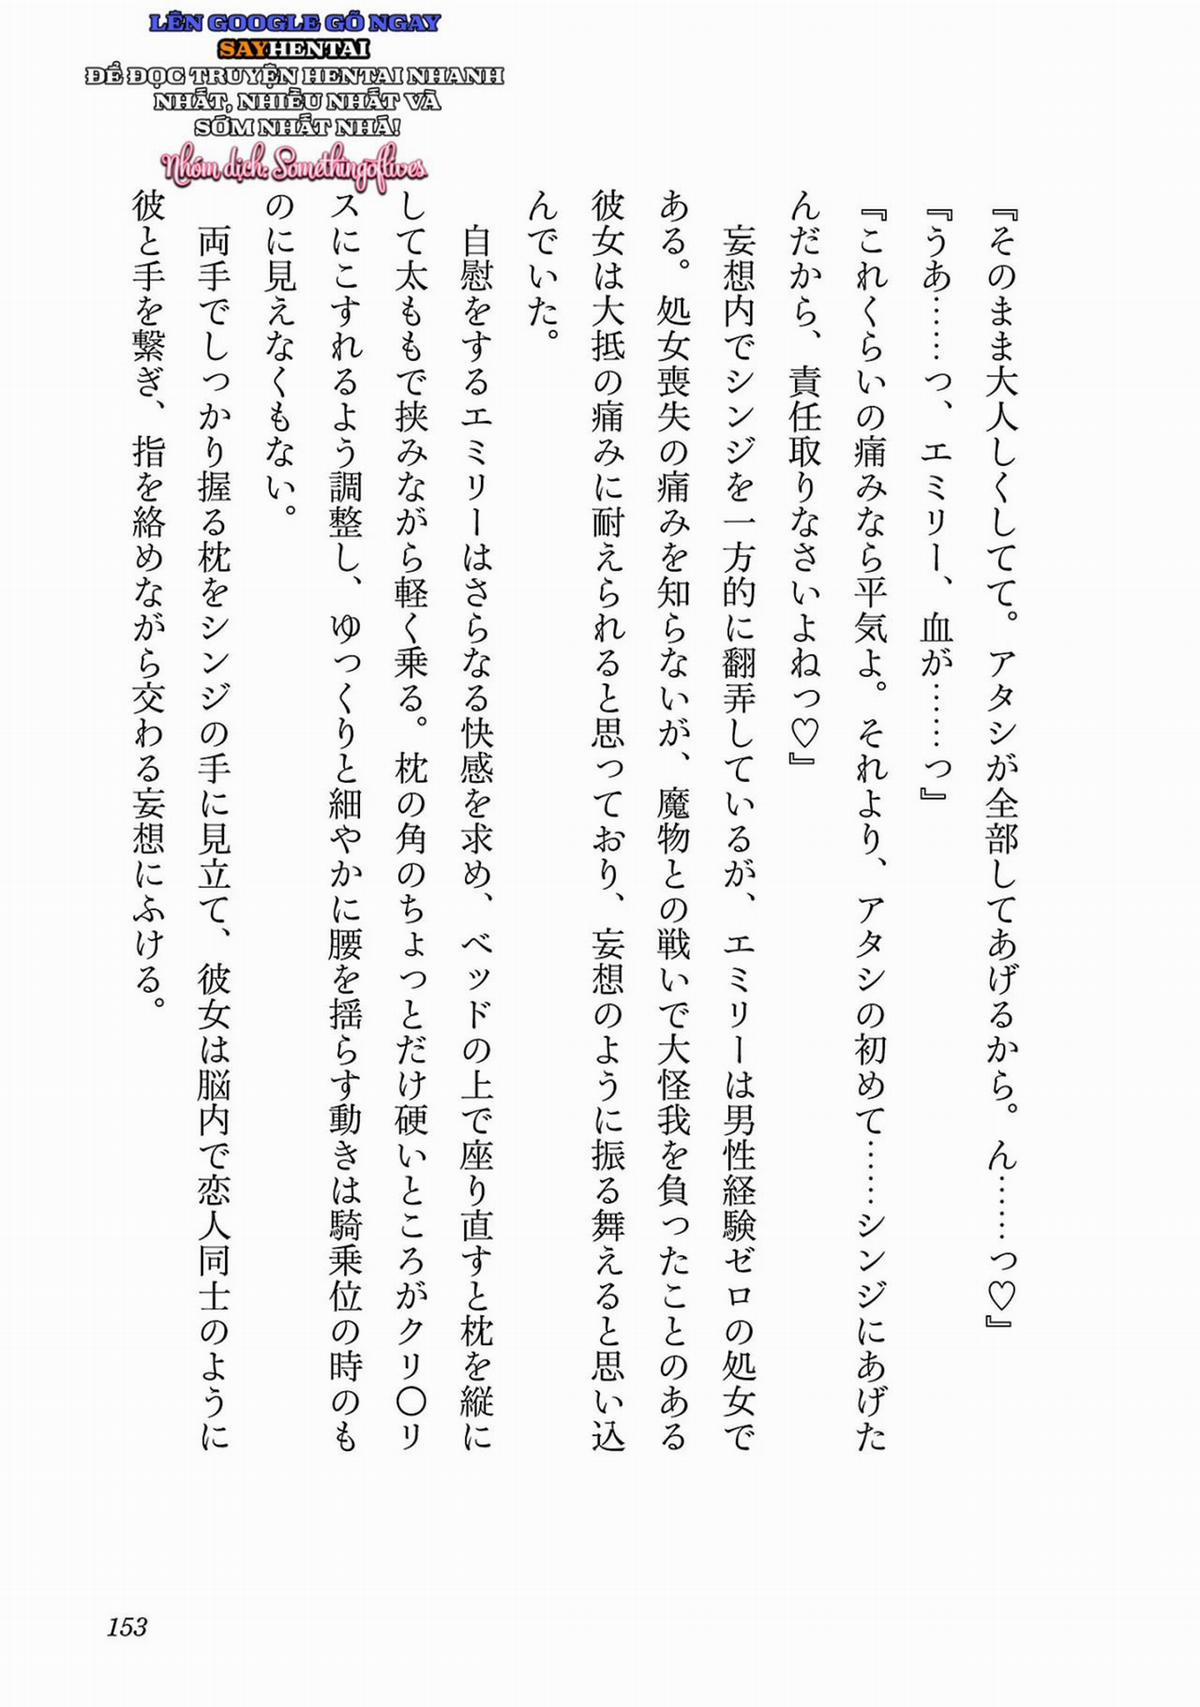 LÊN GOOGLE GÕ NGAY
SAYHENTAI
ĐỂ ĐỌC TRUYỆN HENTAI NHANH
NHẤT, NHIỀU NHẤT VÀ
SỚM NHẤT NHÁ!
Nhóm dịch: Somethingoflives
『そのまま大人しくしてて。アタシが全部してあげるから。ん……っ♡』
『うあ……っ、エミリー、血が……っ』
『これくらいの痛みなら平気よ。それより、アタシの初めて……シンジにあげた
んだから、責任取りなさいよねっ♡』
妄想内でシンジを一方的に翻弄しているが、エミリーは男性経験ゼロの処女で
ある。処女喪失の痛みを知らないが、魔物との戦いで大怪我を負ったことのある
彼女は大抵の痛みに耐えられると思っており、妄想のように振る舞えると思い込
んでいた。
自慰をするエミリーはさらなる快感を求め、ベッドの上で座り直すと枕を縦に
して太ももで挟みながら軽く乗る。枕の角のちょっとだけ硬いところがクリ〇リ
スにこすれるよう調整し、ゆっくりと細やかに腰を揺らす動きは騎乗位の時のも
のに見えなくもない。
両手でしっかり握る枕をシンジの手に見立て、彼女は脳内で恋人同士のように
彼と手を繋ぎ、指を絡めながら交わる妄想にふける。
153